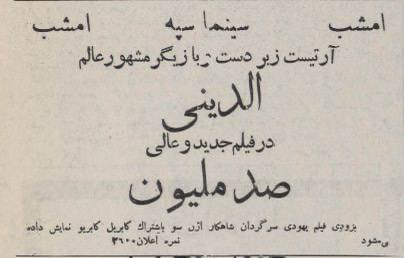 امشب سینما سپه امشب
آرتیست زبر دست و بازیگر مشهور عالم
الدینی
در فیلم جدید و عالی
صد ملیون
بزودی فیلم یهودی سرگردان شاهکار اژن سو باشتراک کابریل کابریو نمایش داده
می‌شود نمره اعلان ۳۶۰۰